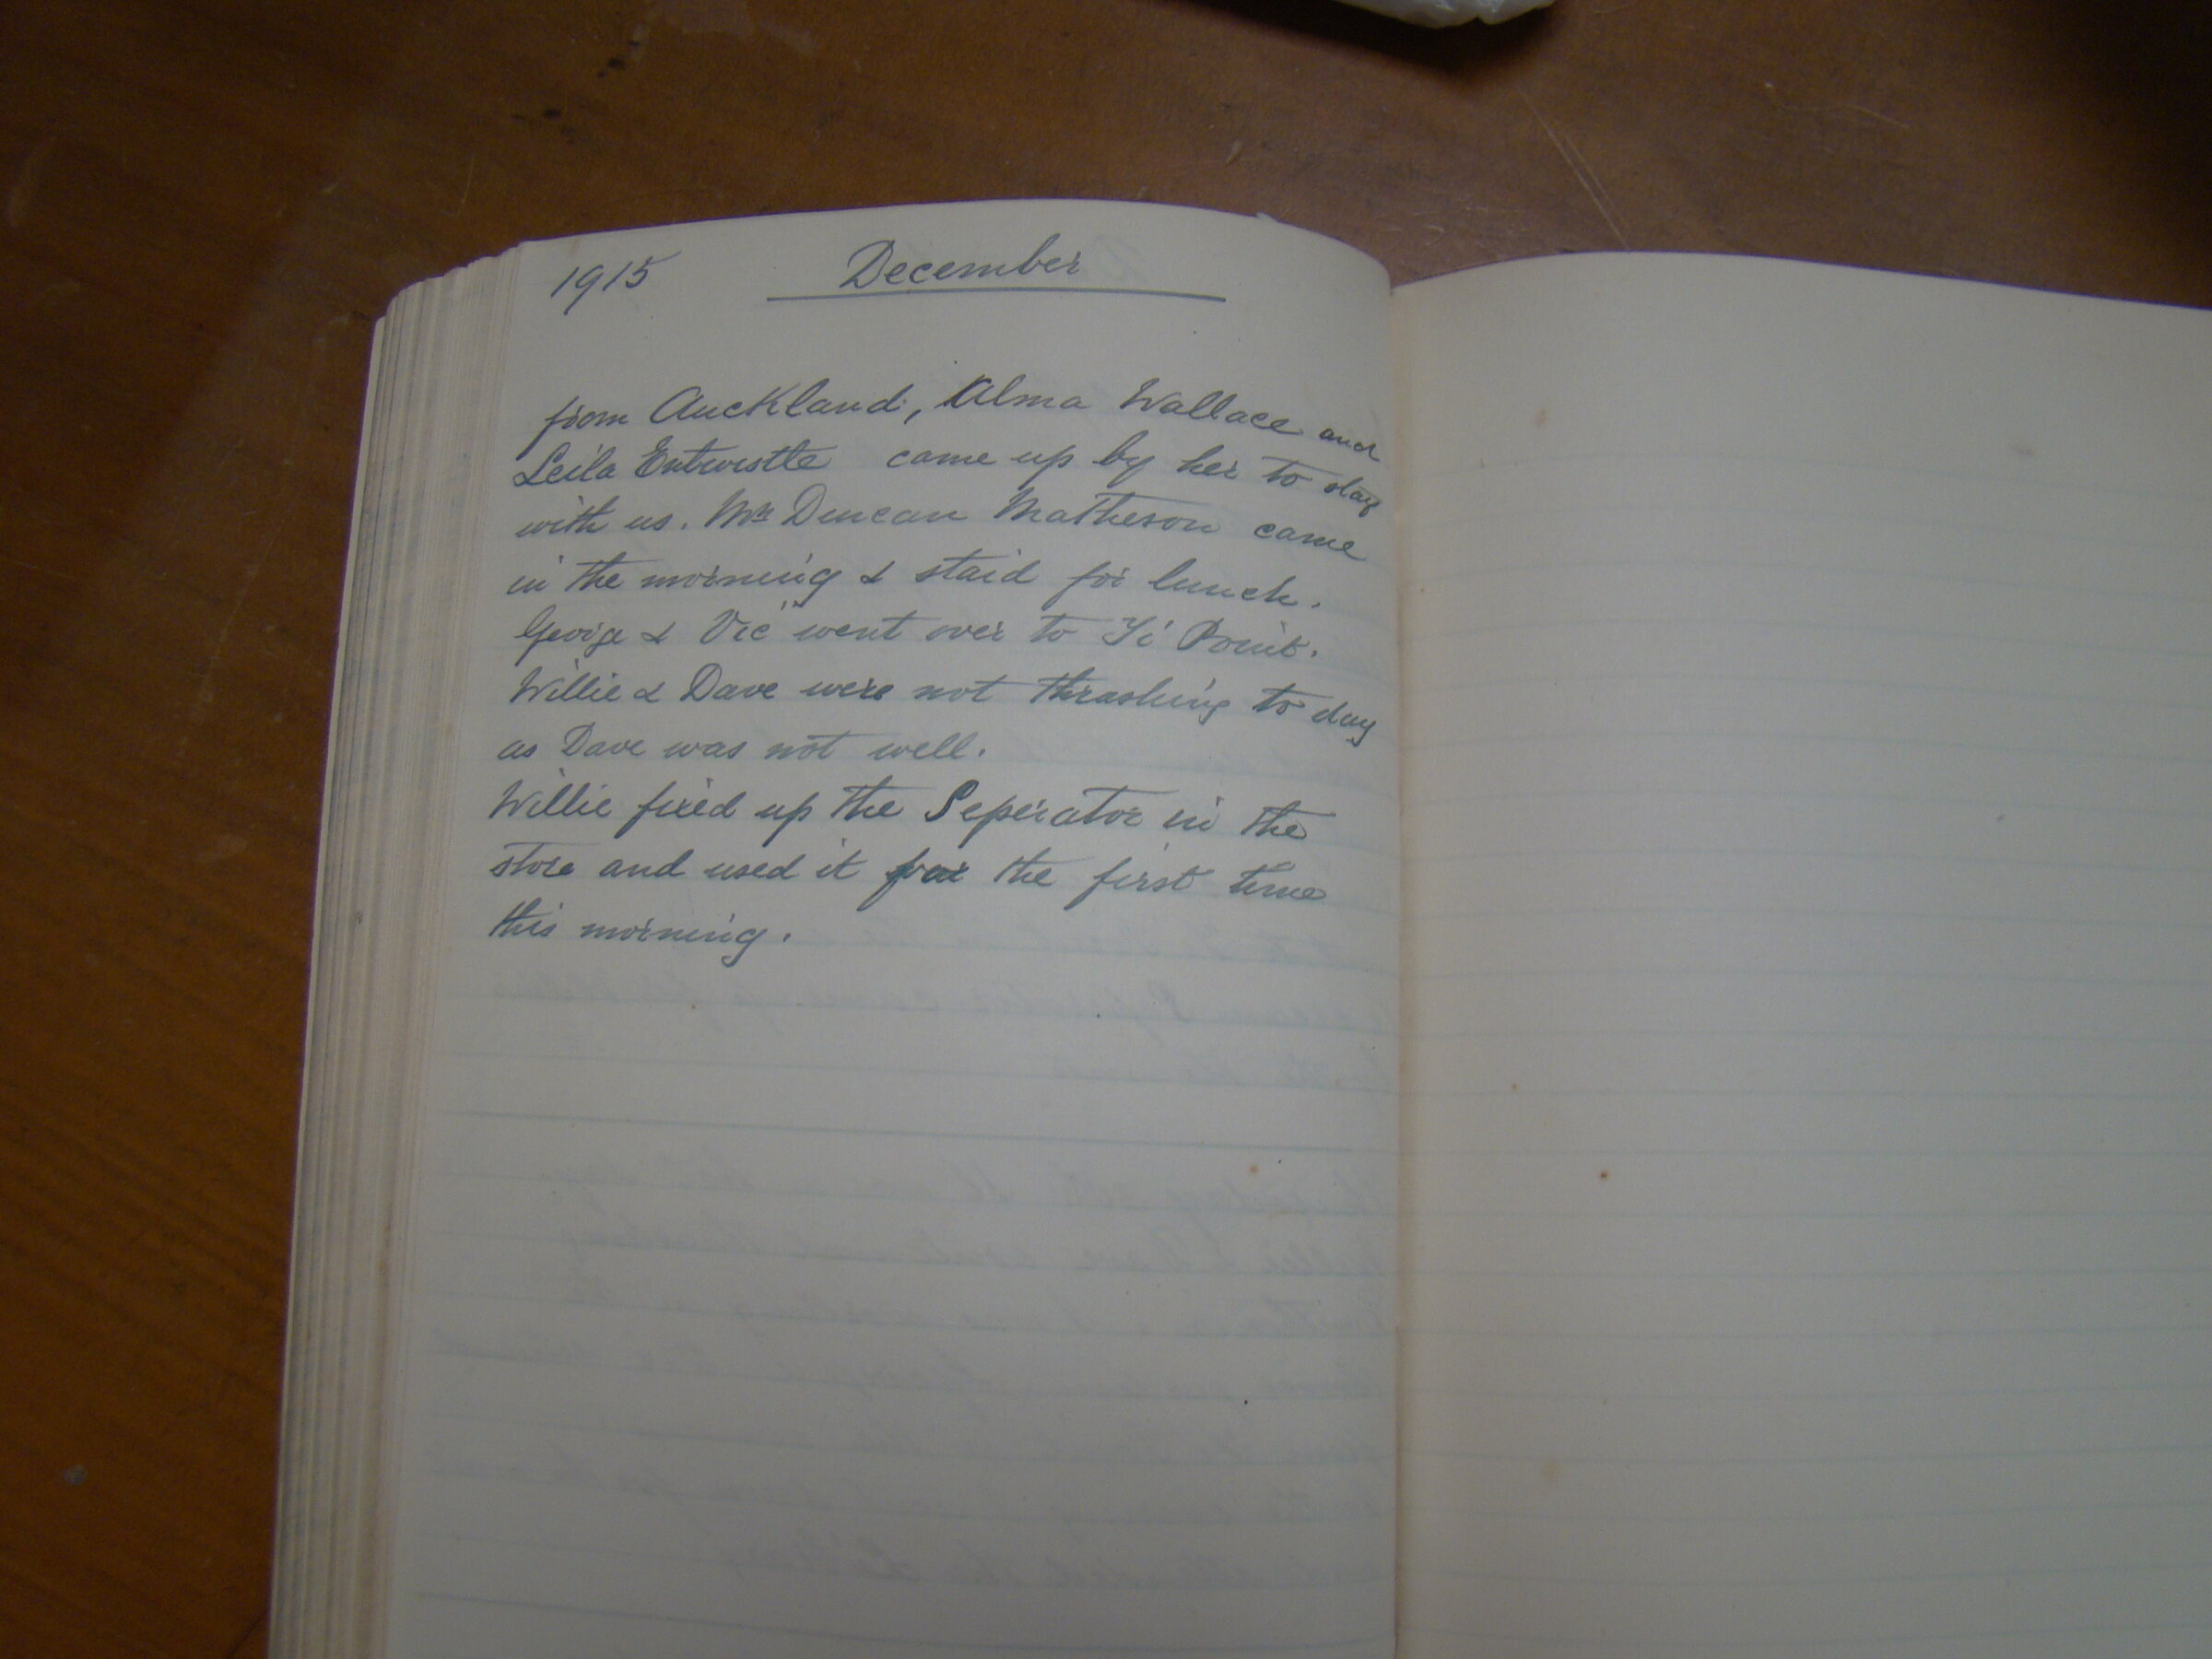 1915 December
from Auckland, Alma Wallace and
Leila Entwistle came up by her to stay
with us. Mr Duncan Matheson came
in the morning & staid for lunch.
George & "Vic" went over to Ti Point.
Willie & Dave were not thrashing to day
as Dave was not well.
Willie fixed up the Seperator in the
store and used it for the first time
this morning.